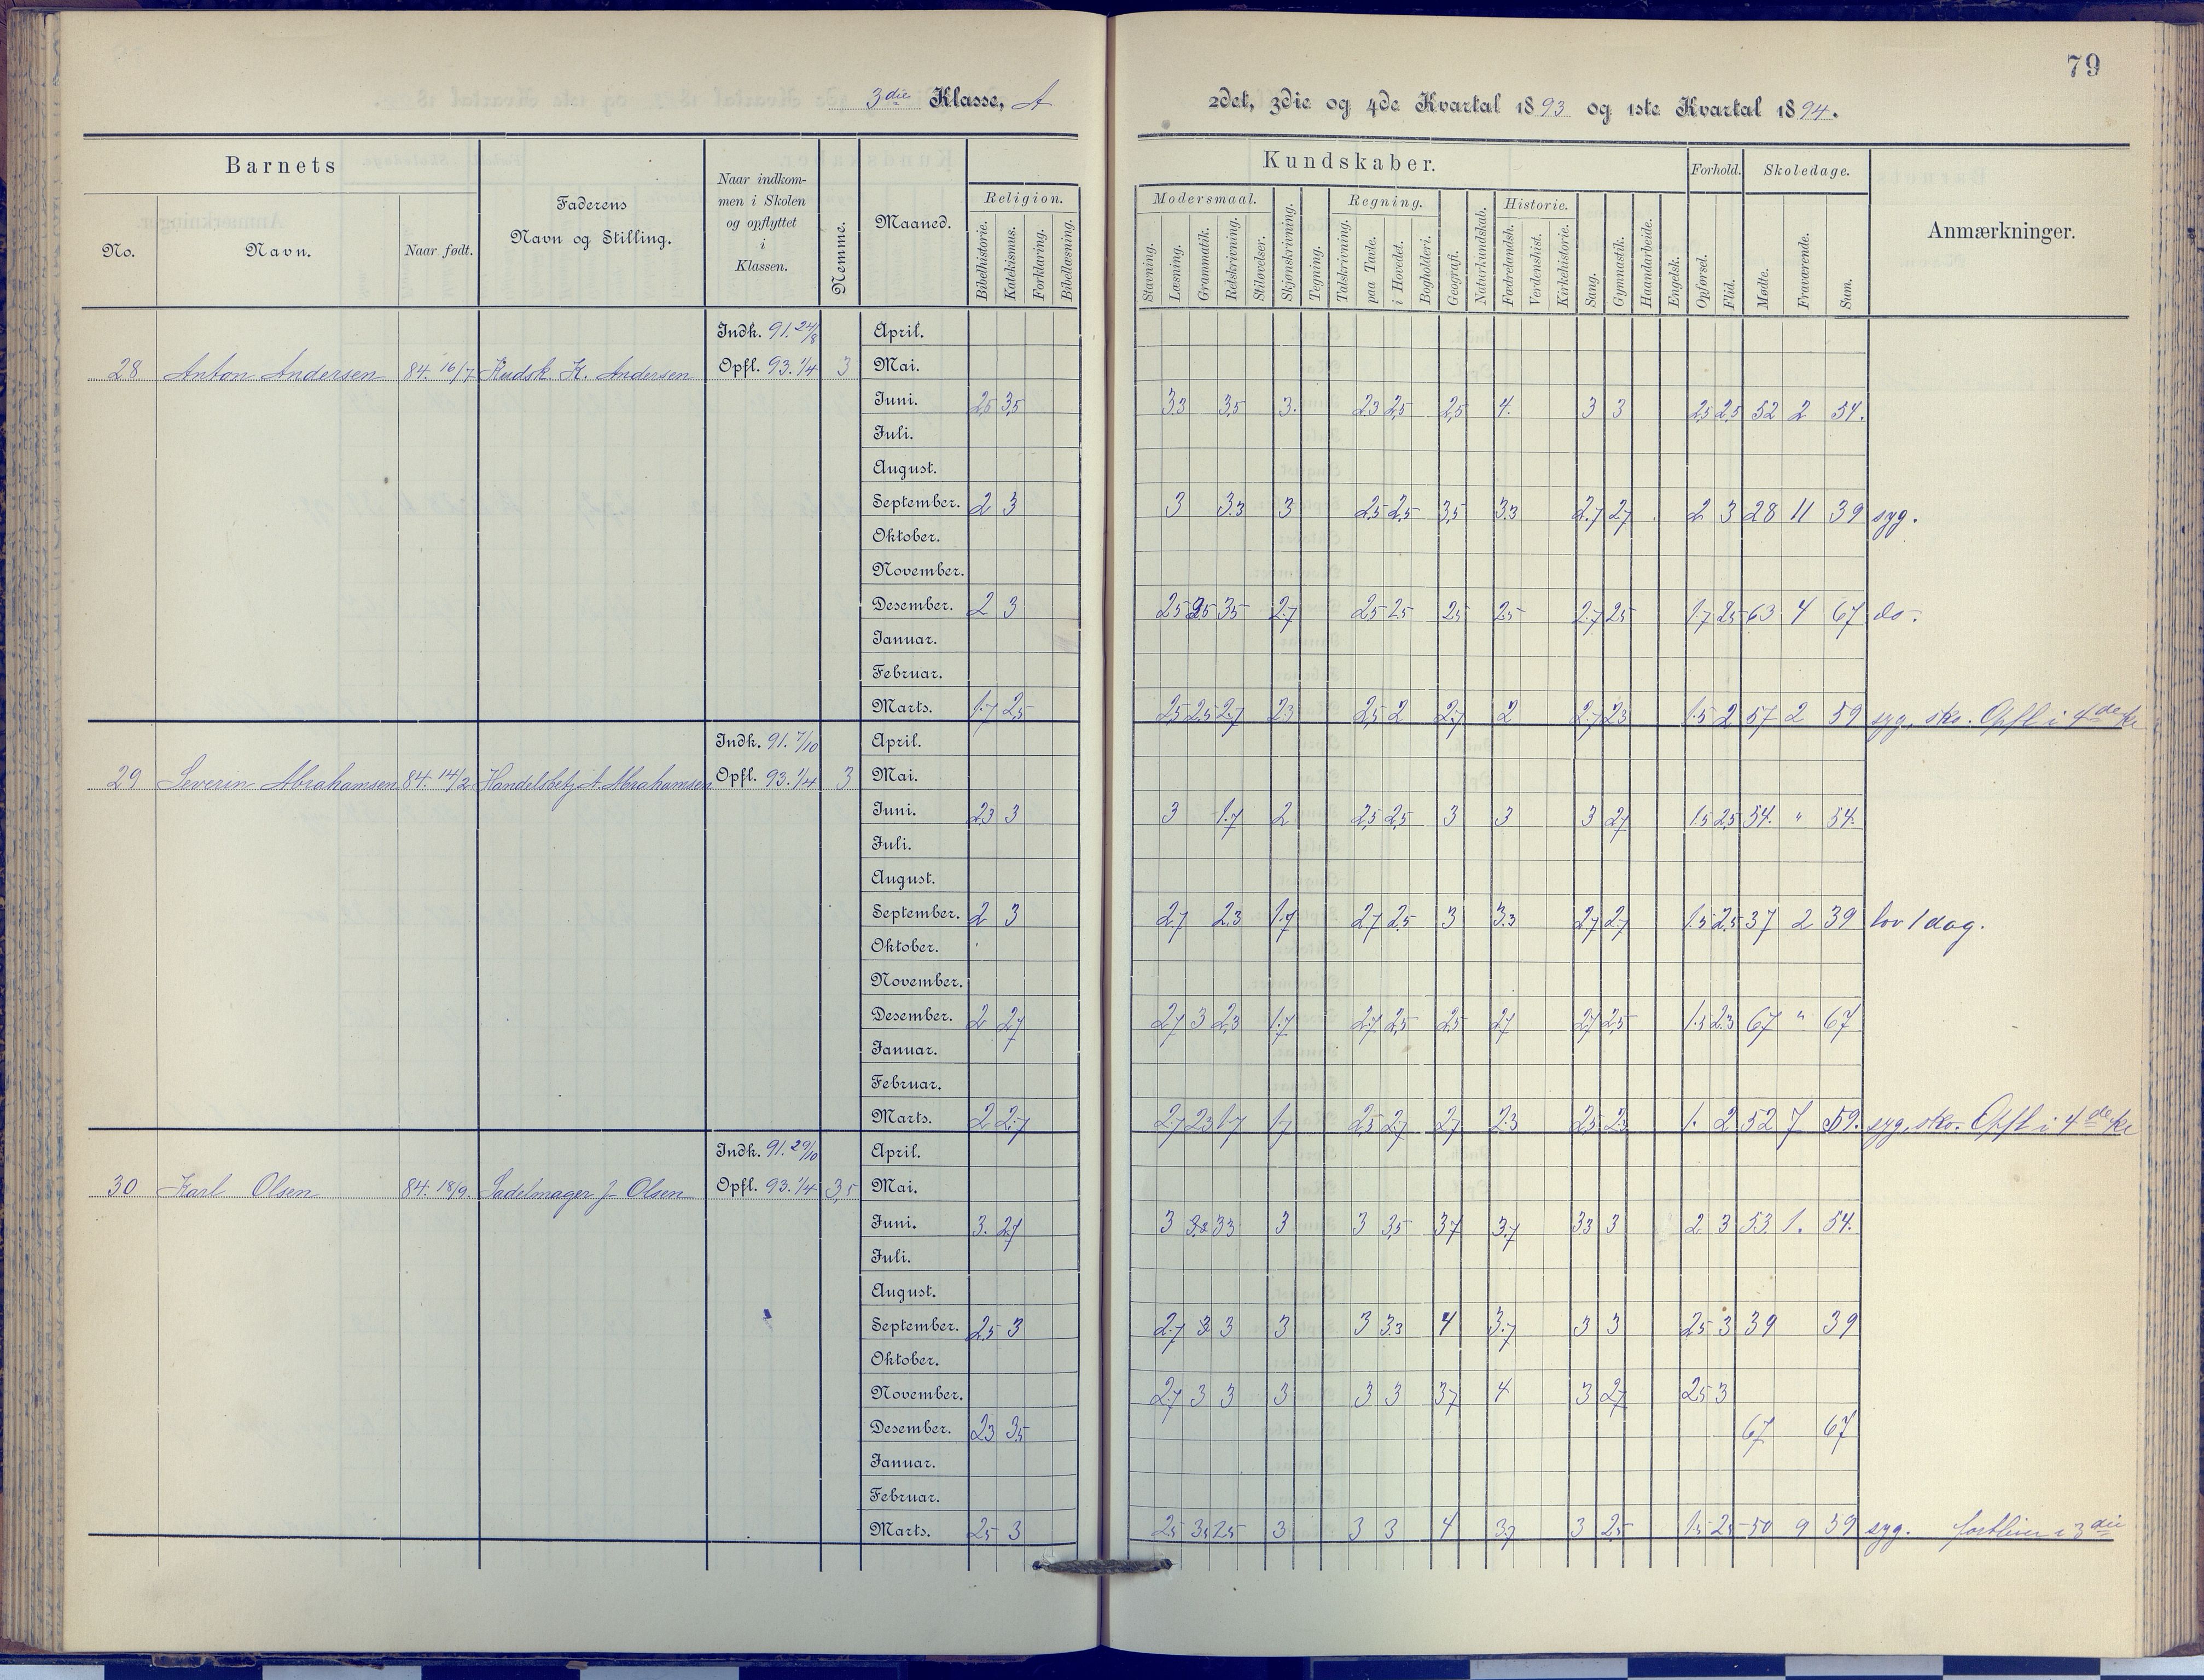 79
3die Klasse, A
2det, 3die og 4de Kvartal 1893 og 1ste Kvartal 1894.
Barnets
No.
Navn.
Naar født.
Faderens
Navn og Stilling.
Naar indkom-
men i Skolen
og opflyttet
i
Klassen.
Nemme.
Maaned.
Kundskaber.
Religion.
Bibelhistorie. Katekismus. Forklaring. Bibellæsning.
Modersmaal.
Stavning. Læsning. Grammatik. Retskrivning. Stiløvelser. Skjønskrivning. Tegning.
Regning.
Talskrivning. paa Tavle. i Hovedet. Bogholderi. Geografi. Naturkundskab.
Historie.
Fædrelandsh. Verdenshist. Kirkehistorie. Sang. Gymnastik. Haandarbeide. Engelsk.
Forhold.
Opførsel. Flid.
Skoledage.
Mødte. Fraværende. Sum.
Anmærkninger.
Indk. 91. 24/8 April.
28 Anton Andersen 84. 16/7 Kudsk K. Andersen Opfl. 93. 1/4 3 Mai.
Juni. 2,5 3,5 3.3 3,5 3. 2.3 2,5 2,5 4. 3 3 2,5 2,5 52 2 54.
Juli.
August.
September. 2 3 3 3.3 3 2,5 2,5 3,5 3.3 2.7 2.7 2 3 28 11 39 syg.
Oktober.
November.
Desember. 2 3 2,5 2,5 3,5 2.7 2,5 2,5 2,5 2,5 2.7 2,5 1.7 2,5 63 4 67 do.
Januar.
Februar.
Marts. 1.7 2,5 2,5 2,5 2.7 2.3 2,5 2 2.7 2 2.7 2.3 1.5 2 57 2 59 syg, sko. Opfl i 4de kl
Indk. 91. 7/10 April.
29 Severin Abrahamsen 84. 14/2 Handelsbetj A. Abrahamsen Opfl. 93. 1/4 3 Mai.
Juni. 2.3 3 3 1.7 2 2,5 2,5 3 3 3 2.7 1.5 2,5 54. " 54.
Juli.
August.
September. 2 3 2.7 2.3 1.7 2.7 2,5 3 3.3 2.7 2.7 1.5 2,5 37 2 39 lov 1 dag.
Oktober.
November.
Desember. 2 2.7 2.7 3 2.3 1.7 2.7 2,5 2,5 2.7 2.7 2,5 1.5 2.3 67 " 67
Januar.
Februar.
Marts. 2 2.7 2.7 2.3 1.7 1.7 2,5 2.7 2.7 2.3 2.5 2.3 1. 2 52 7 59. syg, sko. Opfl i 4de kl
Indk. 91. 29/10 April.
30 Karl Olsen 84. 18/9. Sadelmager J. Olsen Opfl. 93. 1/4 3,5 Mai.
Juni. 3. 2.7 3 3.3 3 3 3,5 3.7 3.7 3.3 3 2 3 53 1. 54.
Juli.
August.
September. 2.5 3 2.7 3 3 3 3 3.3 4 3.7 3 3 2.5 3 39 39
Oktober.
November. 2.7 3 3 3 3 3 3.7 4 3 2.7 2.5 3
Desember. 2.3 3.5 67 67
Januar.
Februar.
Marts. 2.5 3 2.5 3.5 2.5 3 3 3 4 3.7 3 2.5 1.5 2.5 50 9 59 syg. forbliver i 3die